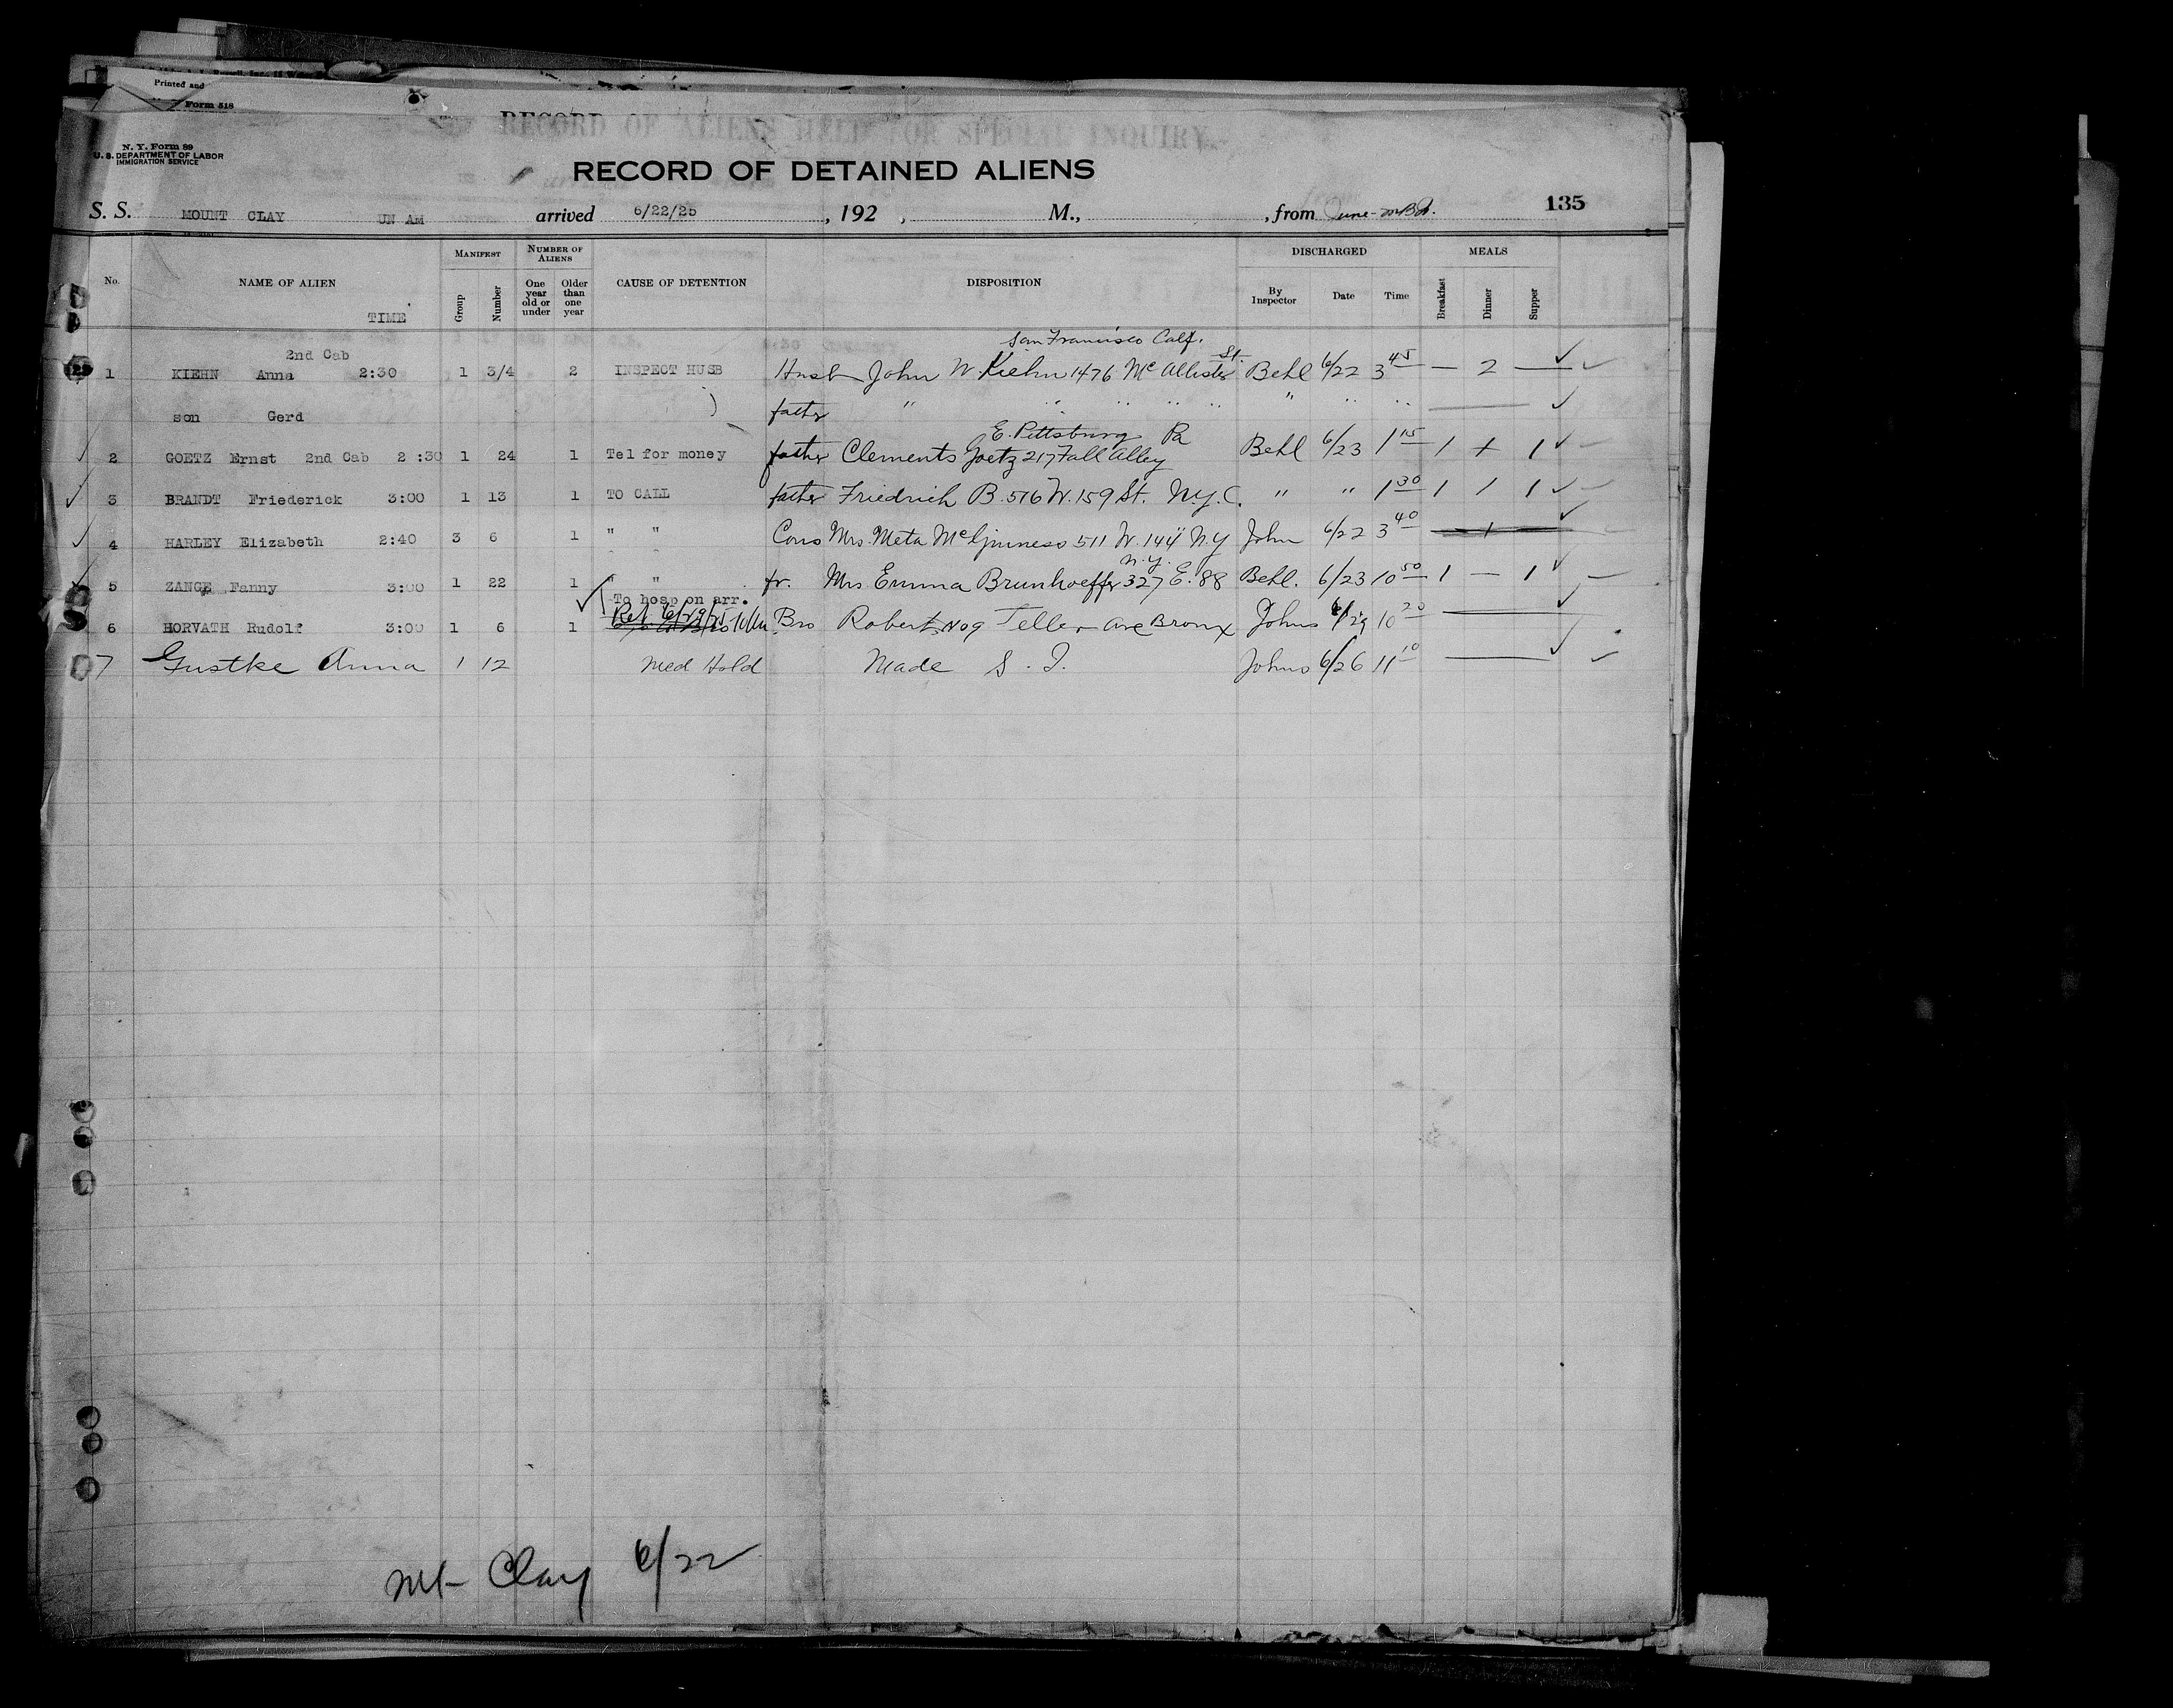 Printed and
Form 518
RECORD OF ALIENS HELD FOR SPECIAL INQUIRY
N. Y. Form 89
U. S. DEPARTMENT OF LABOR
IMMIGRATION SERVICE
RECORD OF DETAINED ALIENS
S. S. MOUNT CLAY UN AM arrived 6/22/25, 192 , M., , from 135
No. NAME OF ALIEN TIME MANIFEST Group Number NUMBER OF ALIENS One year old or under Older than one year CAUSE OF DETENTION DISPOSITION DISCHARGED By Inspector Date Time MEALS Breakfast Dinner Supper
San Francisco Calf.
2nd Cab
1 KIEHN Anna 2:30 1 3/4 2 INSPECT HUSB Husb John W Kiehn 1476 McAllister St. Behl 6/22 3 45 — 2 — ✓ ✓
son Gerd father " " " " " " " " — ✓
E. Pittsburg Pa
✓ 2 GOETZ Ernst 2nd Cab 2:30 1 24 1 Tel for money father Clements Goetz 217 Fall Alley Behl 6/23 1 15 1 1 1 ✓ —
✓ 3 BRANDT Friederick 3:00 1 13 1 TO CALL father Friedrich B. 576 W. 159 St. N.Y.C. " " 1 30 1 1 1 ✓ —
✓ 4 HARLEY Elizabeth 2:40 3 6 1 " " Cous Mrs. Meta McGinness 511 W. 144 N.Y John 6/22 3 40 — 1 — ✓
N.Y.
✓ 5 ZANGE Fanny 3:00 1 22 1 " " fr. Mrs Emma Brunhoeffer 327 E. 88 Behl. 6/23 10 50 1 — 1 ✓ —
✓ To hosp on arr.
6 HORVATH Rudolf 3:00 1 6 1 Rel. 6/29/25 Bro Robert 1409 Teller Ave Bronx Johns 6/29 10 20 — ✓
7 Gustke Anna 1 12 Med Hold Made S. I. Johns 6/26 11 10 — ✓ ✓
Mt Clay 6/22